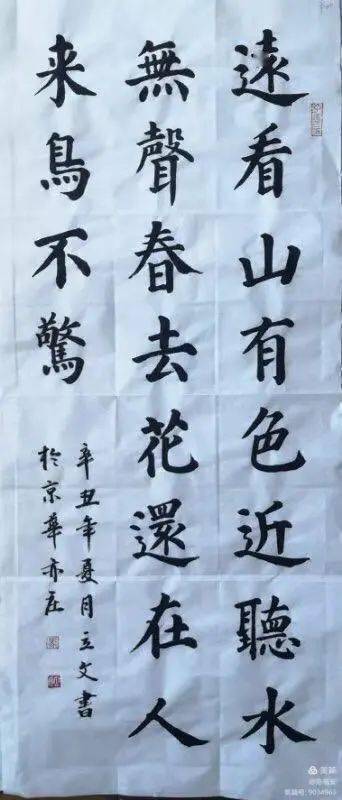 遠看山有色近聽水
無聲春去花還在人
来鳥不驚
辛丑年夏月立文書
於京華亦庄
美篇